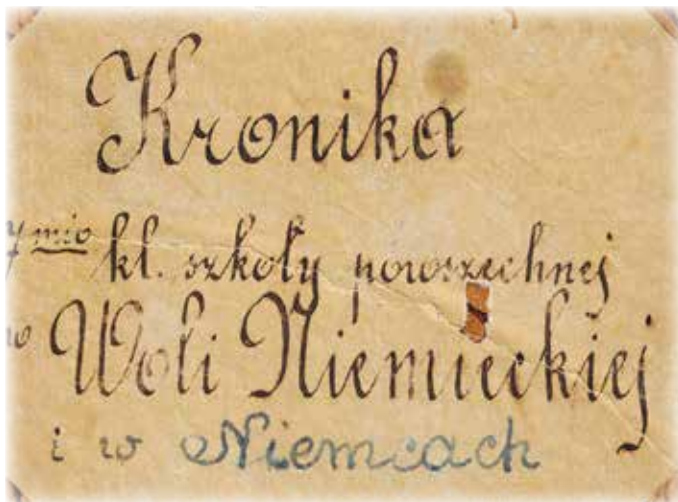 Kronika
7mio kl. szkoły powszechnej
w Woli Niemieckiej
i w Niemcach